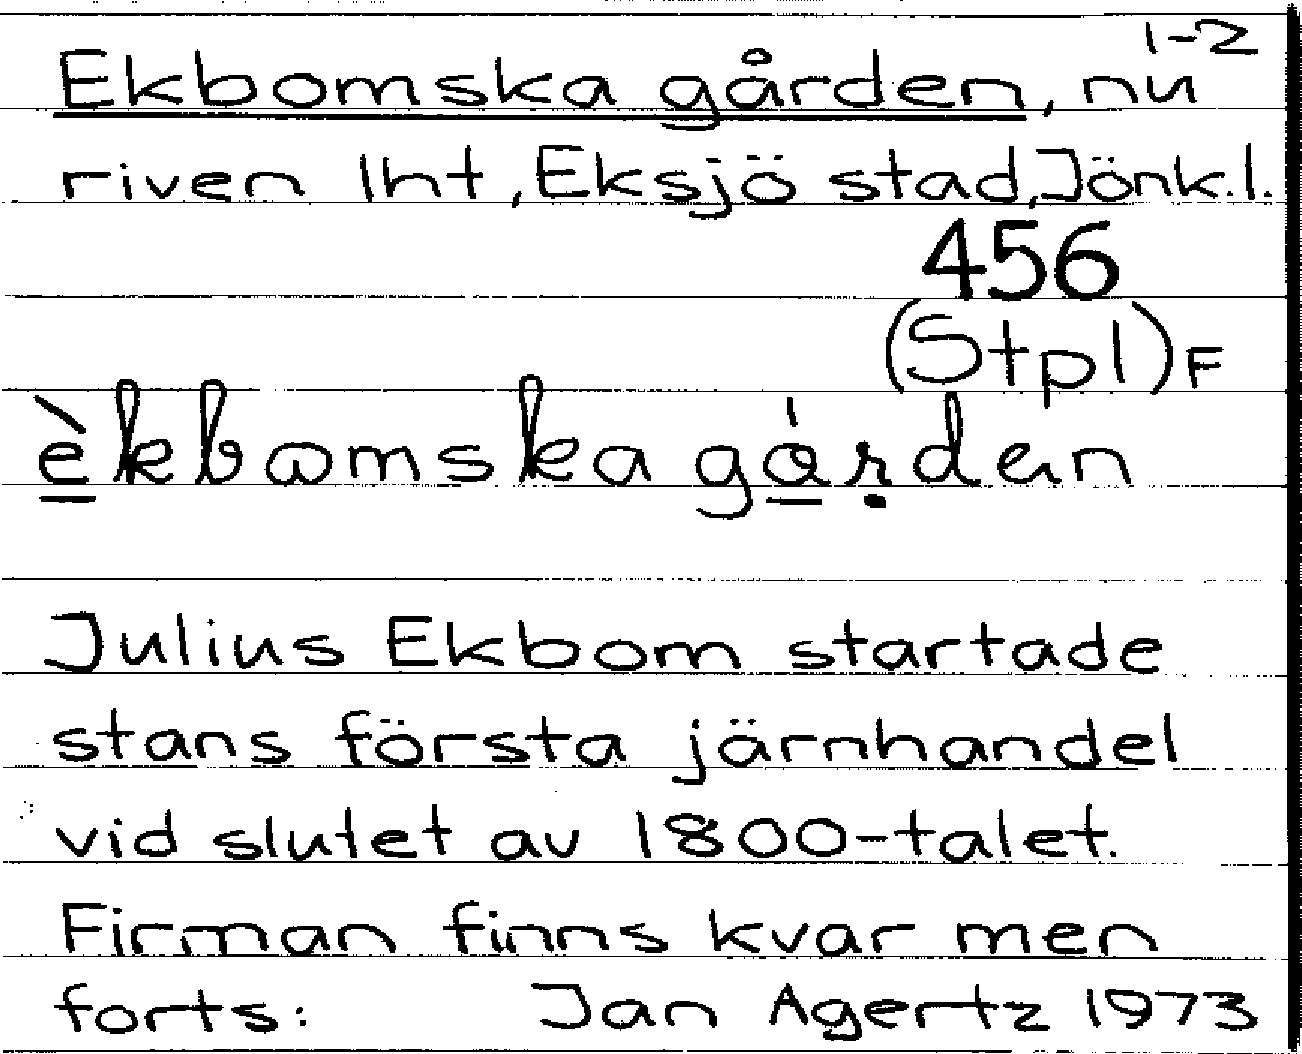 1-2
Ekbomska gården, nu
riven lht, Eksjö stad, Jönk.l.
456
(Stpl)F
èkbomska gárden
Julius Ekbom startade
stans första järnhandel
vid slutet av 1800-talet.
Firman finns kvar men
forts: Jan Agertz 1973